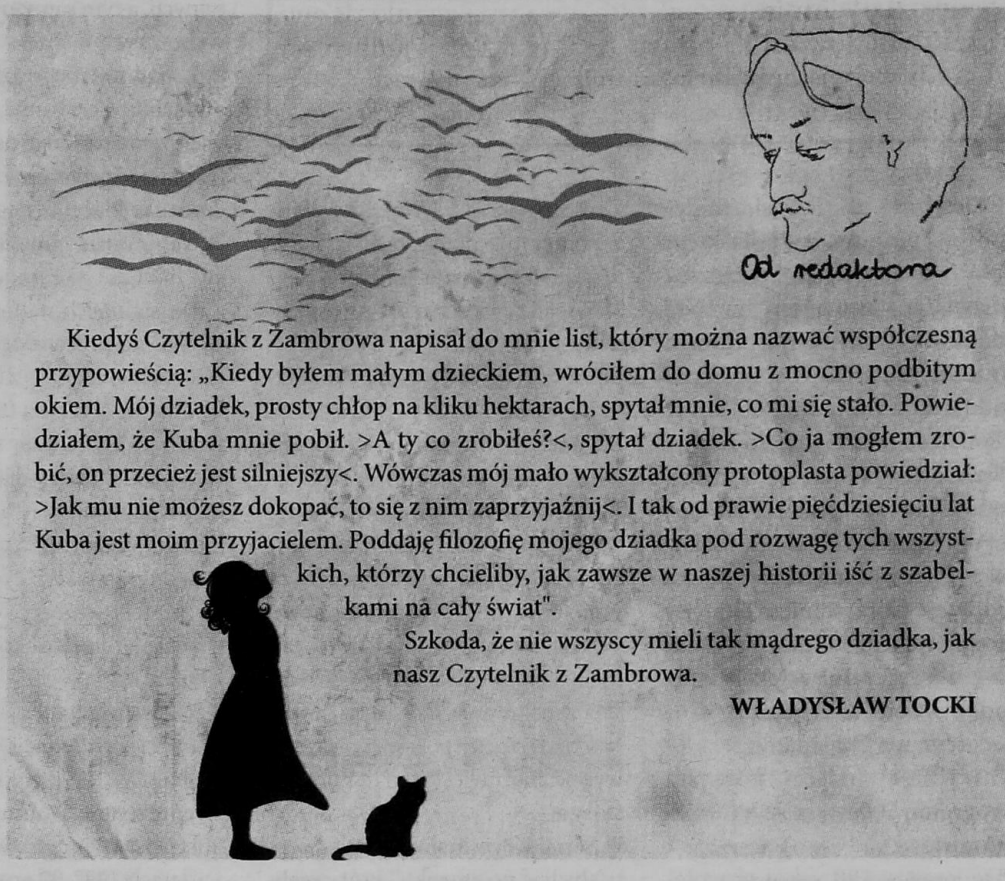 Od redaktora
Kiedyś Czytelnik z Zambrowa napisał do mnie list, który można nazwać współczesną
przypowieścią: „Kiedy byłem małym dzieckiem, wróciłem do domu z mocno podbitym
okiem. Mój dziadek, prosty chłop na kliku hektarach, spytał mnie, co mi się stało. Powie-
działem, że Kuba mnie pobił. >A ty co zrobiłeś?<, spytał dziadek. >Co ja mogłem zro-
bić, on przecież jest silniejszy<. Wówczas mój mało wykształcony protoplasta powiedział:
>Jak mu nie możesz dokopać, to się z nim zaprzyjaźnij<. I tak od prawie pięćdziesięciu lat
Kuba jest moim przyjacielem. Poddaję filozofię mojego dziadka pod rozwagę tych wszyst-
kich, którzy chcieliby, jak zawsze w naszej historii iść z szabel-
kami na cały świat".
Szkoda, że nie wszyscy mieli tak mądrego dziadka, jak
nasz Czytelnik z Zambrowa.
WŁADYSŁAW TOCKI